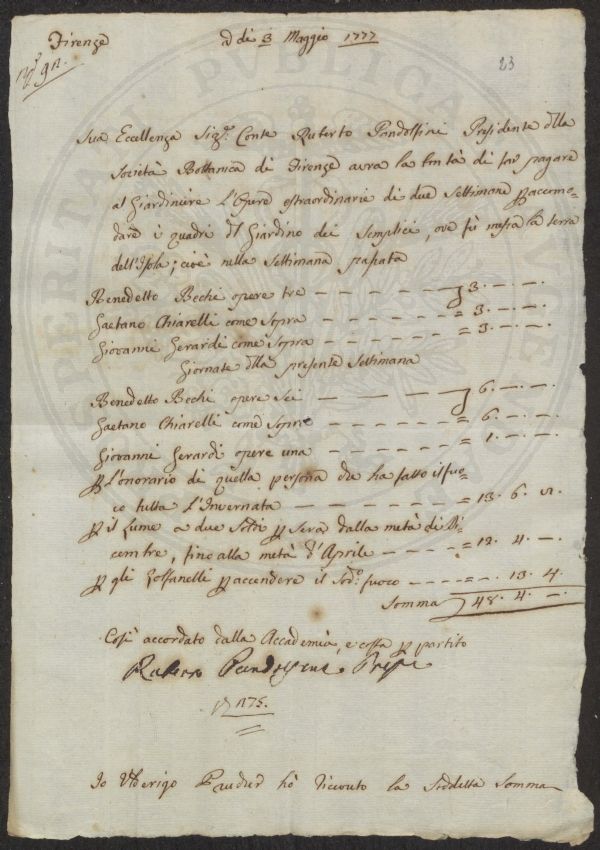 Firenze
A dì 3 Maggio 1777
23
Sua Eccellenza Sigr. Conte Ruberto Pandolfini Presidente dlla
Società Bottanica di Firenze avra la bontà di far pagare
al Giardiniere l'Opere estraordinarie di due Settimane p accomo=
dare i quadri dl Giardino dei Semplici, ove fù messa la terra
dell'Isola; cioè nella Settimana passata
Benedetto Bechi opere tre 3. — —.
Gaetano Chiarelli come sopra = 3. — —.
Giovanni Gerardi come sopra = 3. — —.
Giornate dlla presente Settimana
Benedetto Bechi opere Sei 6. — —.
Gaetano Chiarelli come Sopra = 6. — —.
Giovanni Gerardi opere una = 1. — —.
P L'onorario di quella persona che ha fatto il fuo=
co tutta L'Invernata = 13. 6. 8.
P il Lume a due Soldi p Sera dalla metà di Di
cembre, fino alla metà d'Aprile = 12. 4. —
P gli Zolfanelli p accendere il Sodo. fuoco = —. 13. 4.
Somma 48. 4. —
Così accordato dalla Accademia, e costa p partito
Ruberto Pandolfini Presid
1175.
Io Ulderigo ho ricevuto la Suddetta Somma